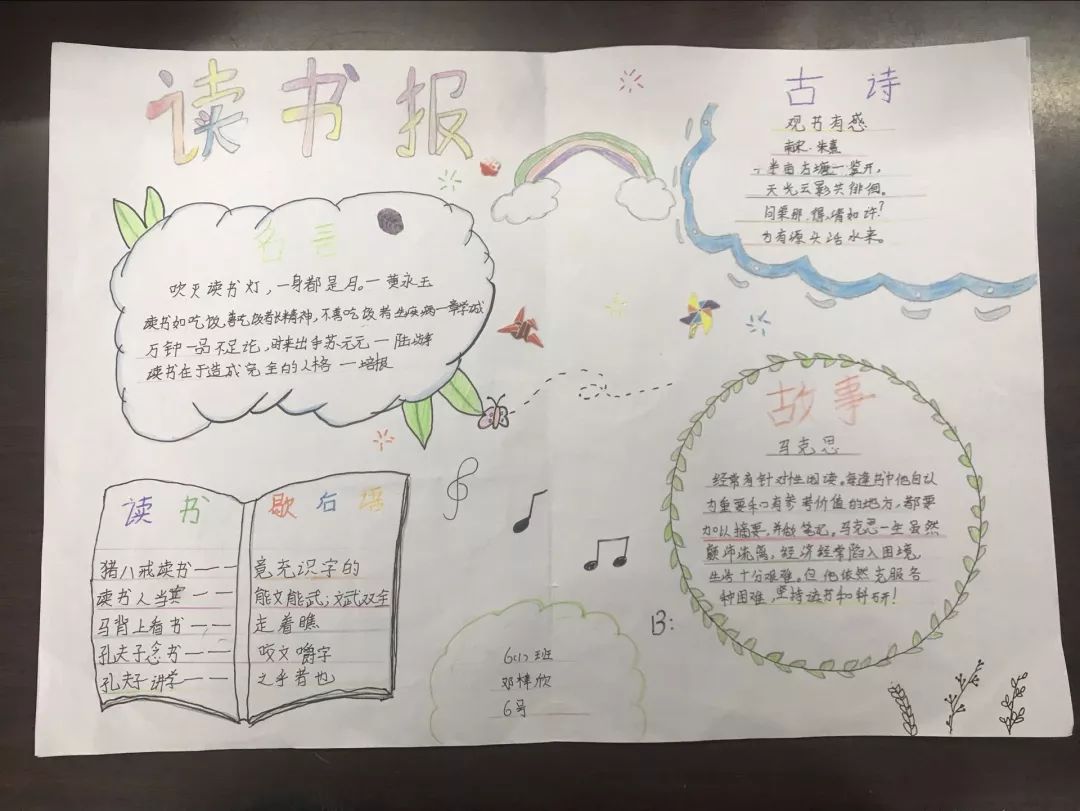 读书报
名言
吹灭读书灯，一身都是月。一黄永玉
读书如吃饭，善吃饭者长精神，不善吃饭者生疾病一章学诚
万钟一品不足论，时来出手苏元元一陆游
读书在于造成完全的人格一培根
读书
猪八戒读书一一
读书人当兵一一
马背上看书一一
孔夫子念书一一
孔夫子讲学一一
歇后语
竟充识字的
能文能武；文武双全
走着瞧
咬文嚼字
之乎者也
古诗
观书有感
南宋·朱熹
半亩方塘一鉴开，
天光云影共徘徊。
问渠那得清如许？
为有源头活水来。
故事
马克思
经常有针对性阅读。每逢书中他自认
为重要和有参考价值的地方，都要
加以摘要，并做笔记。马克思一生虽然
颠沛流离，经济经常陷入困境，
生活十分艰难。但他依然克服各
种困难，坚持读书和科研！
B:
6(1)班
邓梓欣
6号